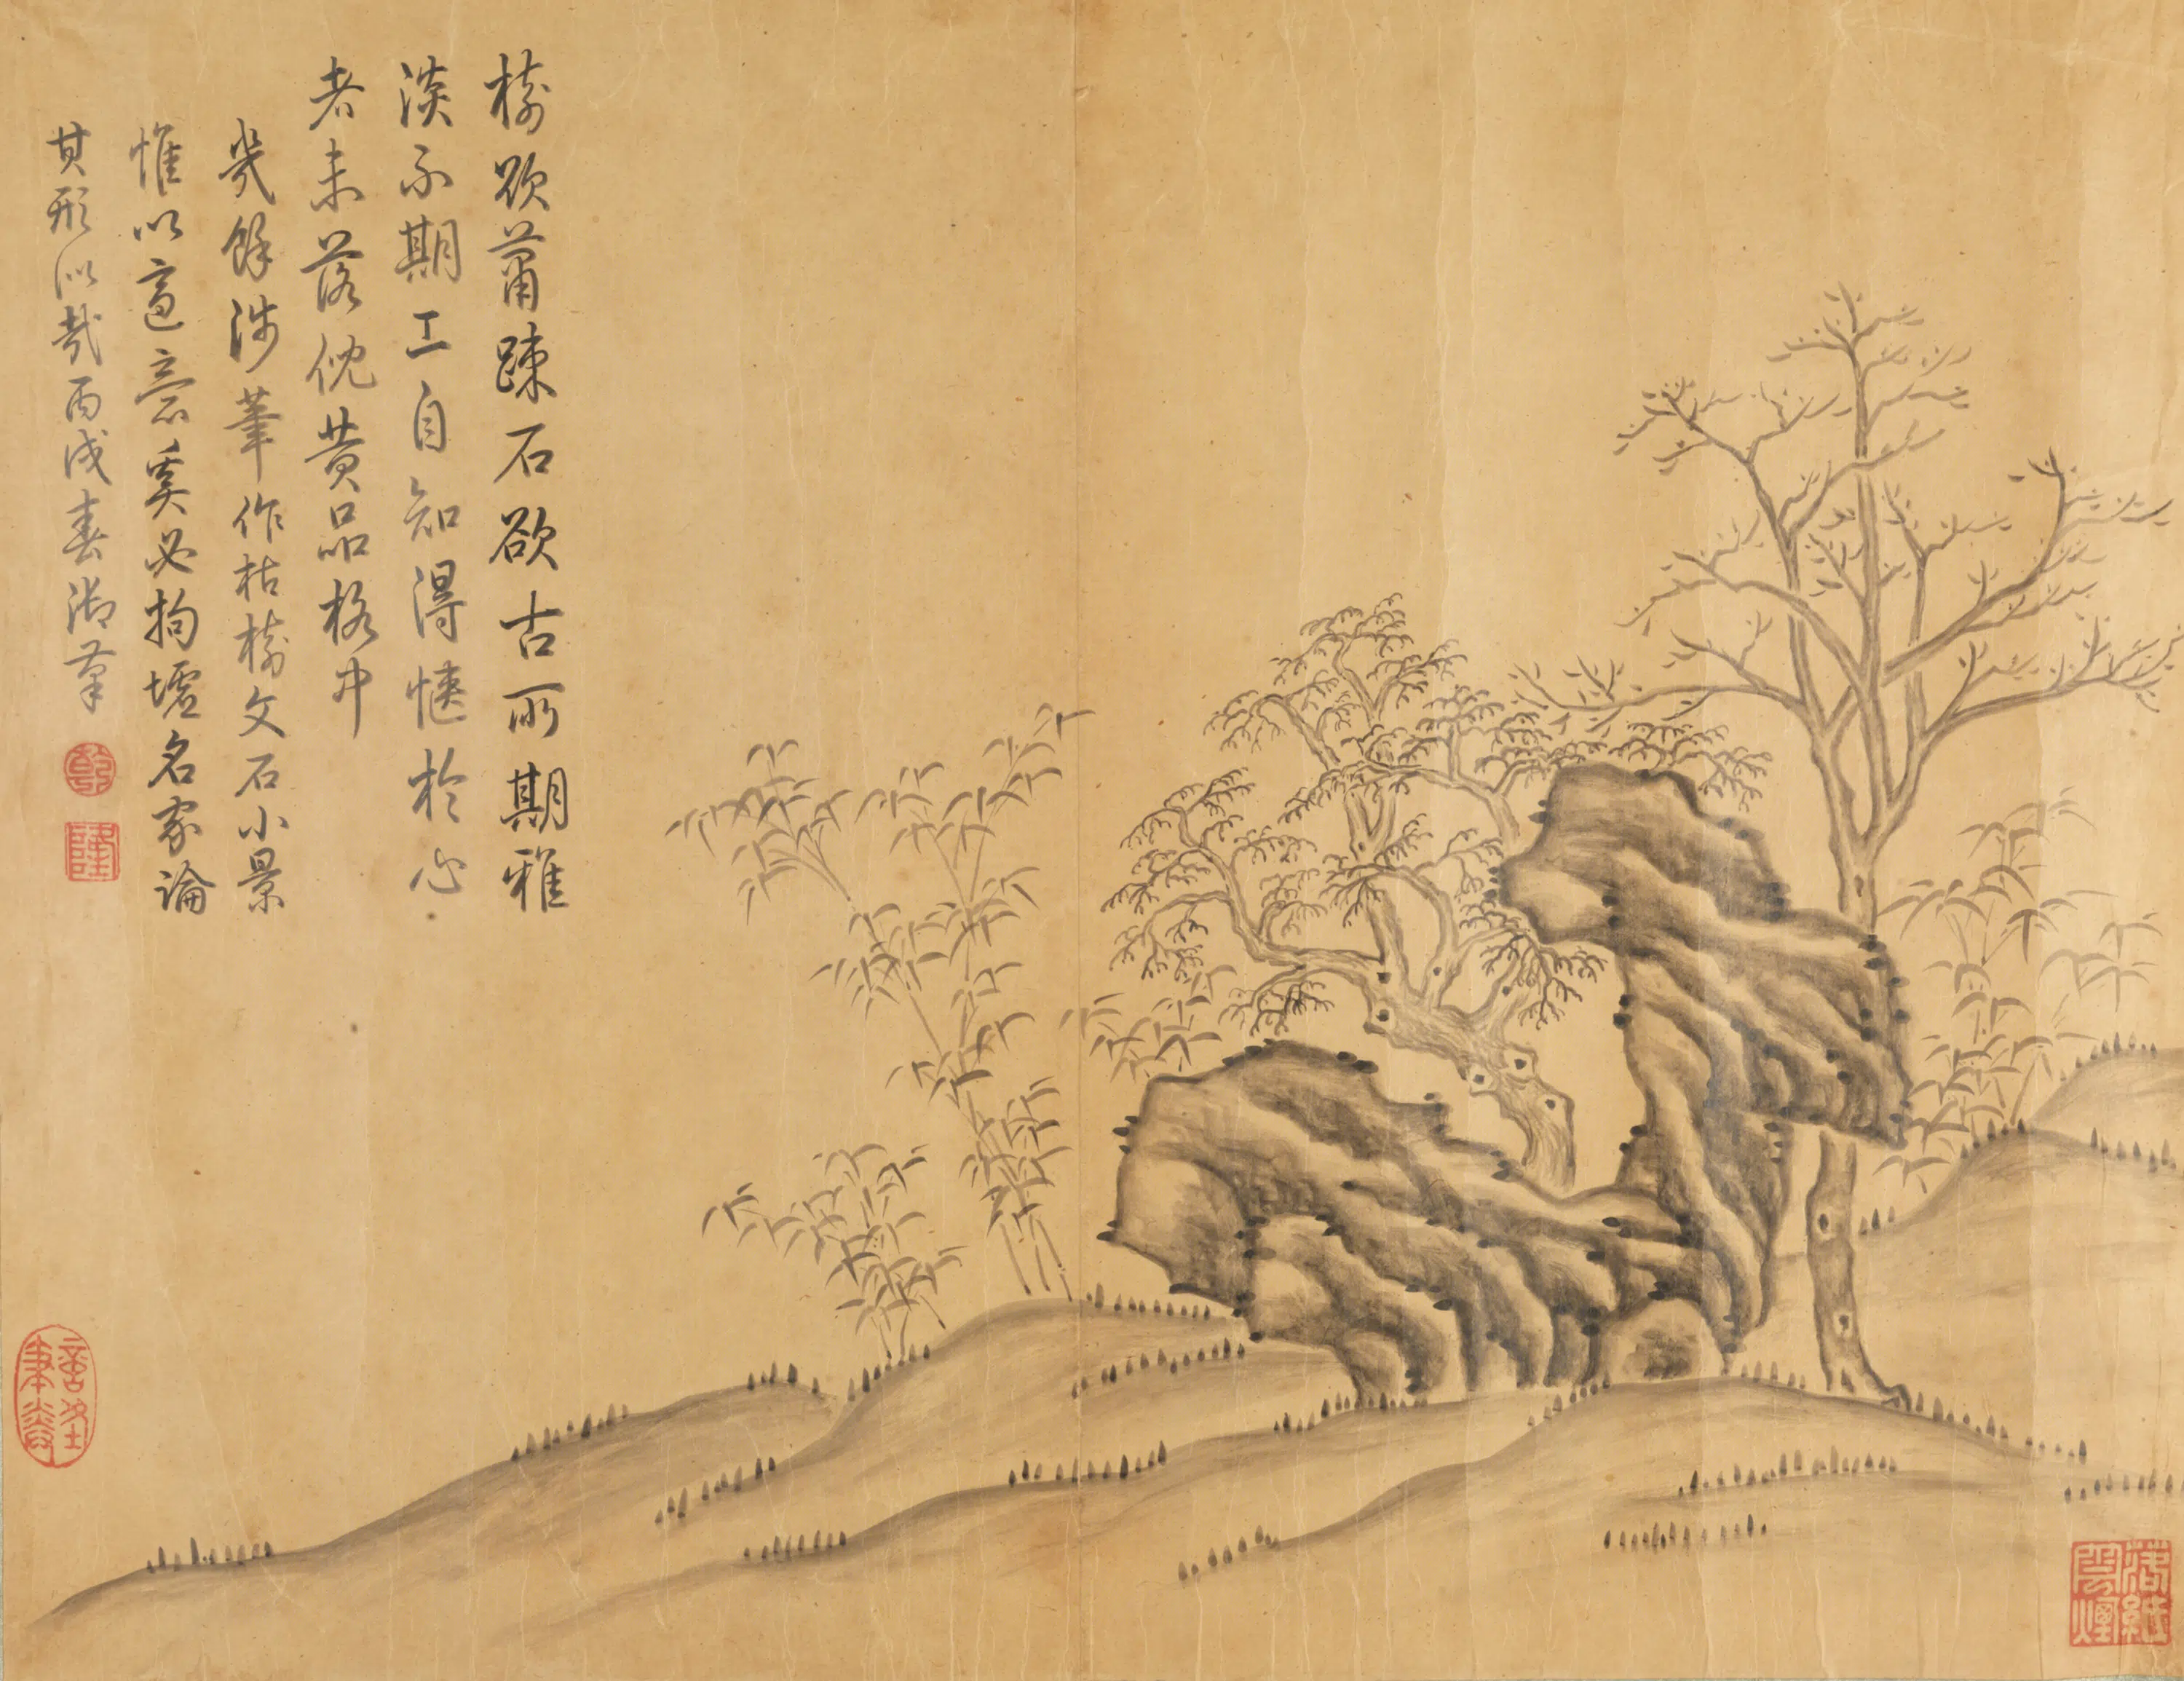 樹欲蕭踈石欲古所期雅
淡不期工自知得愜於心
者未落倪黃品格中
幾餘涉筆作枯樹文石小景
惟以適意奚必拘墟名家論
其形似哉丙戌春御筆
乾
隆
落紙雲煙